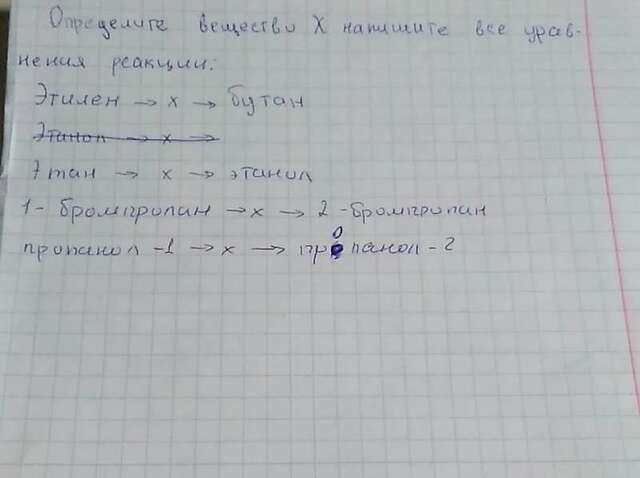 Определите вещество X напишите все урав-
нения реакции:
Этилен → x → бутан
Этанол → x →
Этан → x → этанол
1-бромпропан → x → 2-бромпропан
пропанол-1 → x → пропанол-2